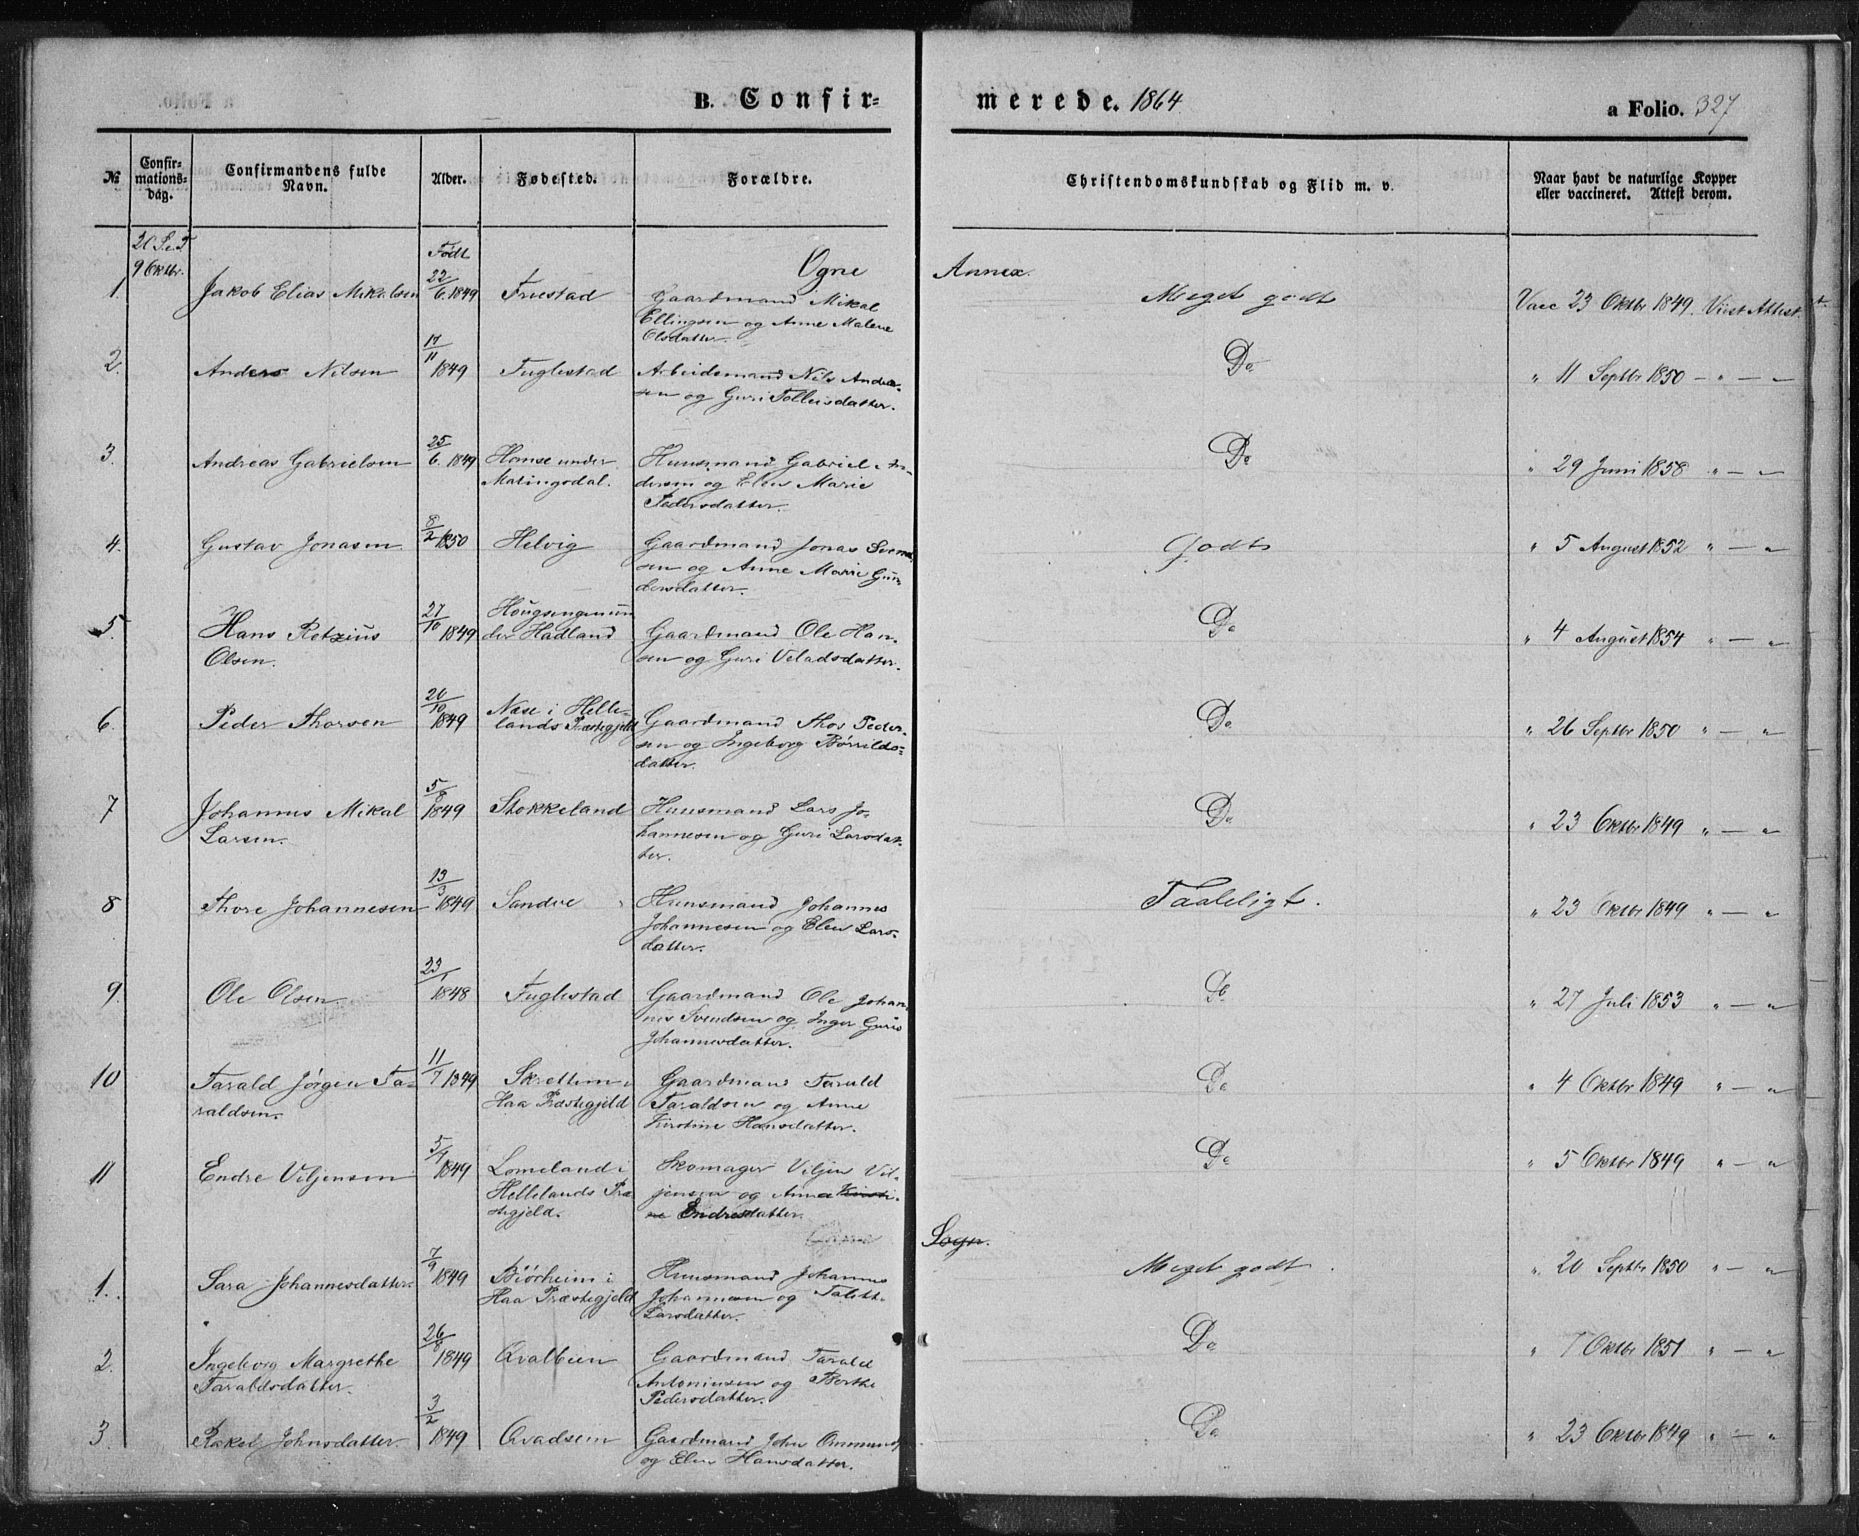 B. Confir=
merede. 1864
a Folio. 327
№
Confir=
mations=
dag.
Confirmandens fulde
Navn.
Alder.
Fødested.
Forældre.
Christendomskundskab og Flid m. v.
Naar havt de naturlige Kopper
eller vaccineret. Attest derom.
9 Oktbr.
Født
Ogne Annex.
1. Jakob Elias Mikalsen 22/6. 1849 Gaardmand Mikal Meget godt Vacc 23 Oktbr 1849. Viist Attest.
Ellingsen og Anne Malene
Olsdatter.
2. Anders Nilsen 17/11 1849 Fuglestad Arbeidsmand Nils Andre- Do " 11 Septbr 1850 — " — "
sen og Guri Tolleisdatter.
3. Andreas Gabrielsen 25/6. 1849 Homse under Huusmand Gabriel An- Do " 29 Juni 1858 " — "
Matingsdal. dersen og Elen Marie
Pedersdatter.
4. Gustav Jonasen 8/2 1850 Helvig Gaardmand Jonas Svend- Godt " 5 August 1852 " — "
sen og Anne Marie Gun-
dersdatter.
5. Hans Retzius 27/10 1849 Hougsengen un Gaardmand Ole Han- Do " 4 August 1854 " — "
Olsen. der Hadland sen og Guri Veladsdatter.
6. Peder Thorsen 20/10 1849 Næse i Helle- Gaardmand Thos Peder- Do " 26 Septbr 1850 " — "
lands Præstegjeld sen og Ingeborg Børrilds-
datter.
7 Johannes Mikal 5/8 1849 Stokkeland Huusmand Lars Jo- Do " 23 Oktbr 1849 " — "
Larsen. hannesen og Guri Larsdat-
ter.
8 Thore Johannesen 13/3 1849 Sandve Huusmand Johannes Taaleligt. " 23 Oktbr 1849 " — "
Johannesen og Elen Lars-
datter.
9. Ole Olsen 23/1 1848 Fuglestad Gaardmand Ole Johan- Do " 27 Juli 1853 " — "
nes Svendsen og Inger Guris
Johannesdatter.
10 Tarald Jørgen Ta- 11/7 1849 Gaardmand Tarald Do " 4 Oktbr 1849 " — "
raldsen. Haa Præstegjeld Taraldsen og Anne
Kirstine Hansdatter.
11 Endre Viljensen 5/9 1849 Lomeland i Skomager Viljen Vil- Do " 5 Oktbr 1849 " — "
Hellelands Præ jensen og Anna Kirsti-
stegjeld. ne Endresdatter.
Sogn.
1. Sara Johannesdatter. 7/9 1849 Biørheim i Huusmand Johannes Meget godt. " 20 Septbr 1850 " — "
Haa Præstegjeld Johannesen og
Larsdatter.
2. Ingeborg Margrethe 26/8 1849 Qvalbein Gaardmand Tarald Do " 7 Oktbr 1851 " — "
Taraldsdatter. Antoniusen og Berthe
Pedersdatter.
3. Rakel Johnsdatter. 3/2 1849 Qvadsem Gaardmand John Ommunds Do " 23 Oktbr 1849 " — "
og Elen Hansdatter.